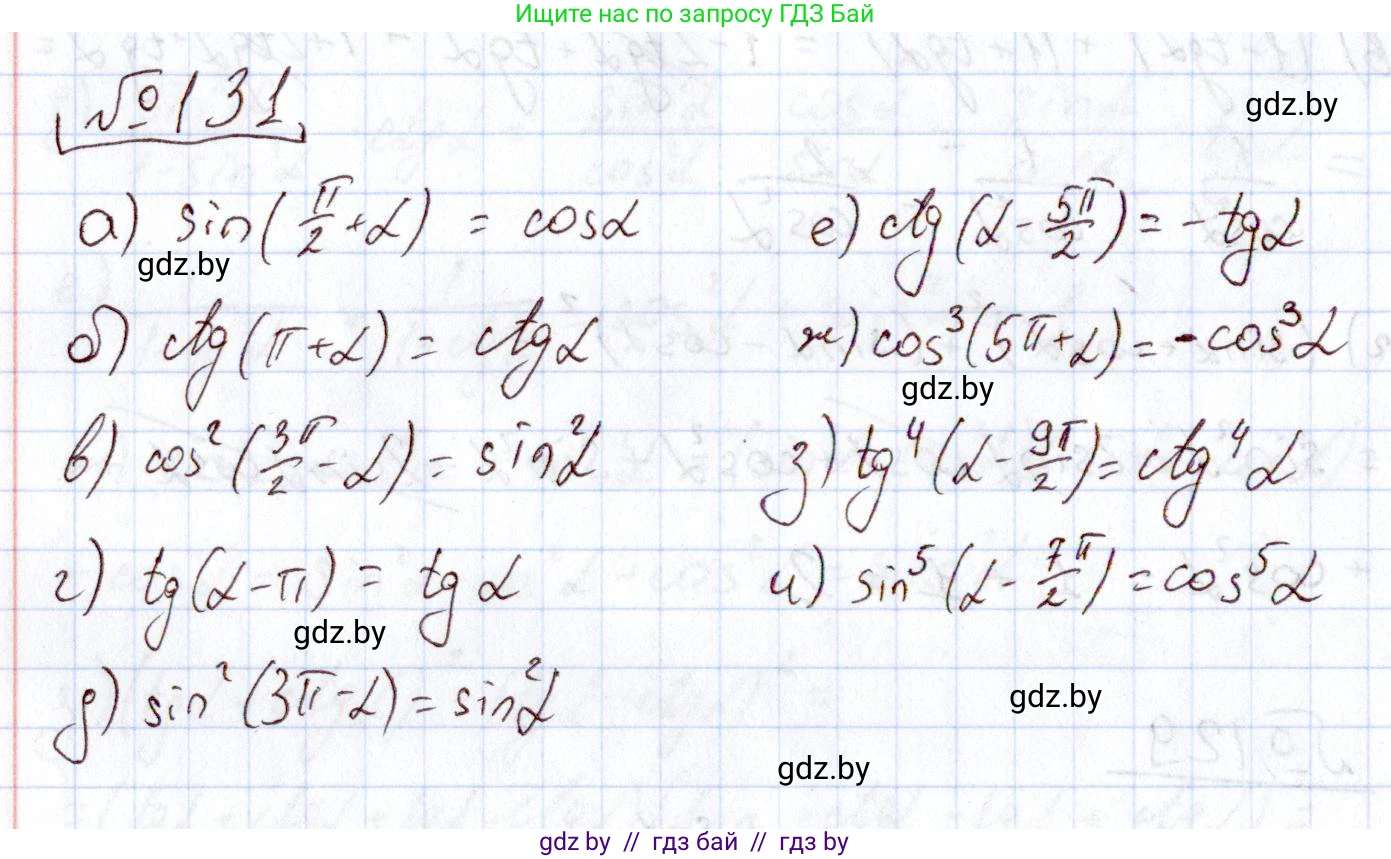 Ищите нас по запросу ГДЗ Бай
№131
gdz.by
а) sin(π/2+α) = cosα
gdz.by
б) ctg(π+α) = ctgα
в) cos²(3π/2-α) = sin²α
г) tg(α-π) = tgα
gdz.by
д) sin²(3π-α) = sin²α
е) ctg(α-5π/2) = -tgα
ж) cos³(5π+α) = -cos³α
gdz.by
з) tg⁴(α-9π/2) = ctg⁴α
и) sin⁵(α-7π/2) = cos⁵α
gdz.by
gdz.by
gdz.by // гдз бай // гдз by